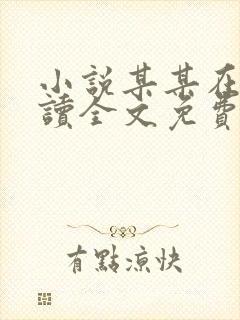 小說某某在
讀全文免費
有點涼快